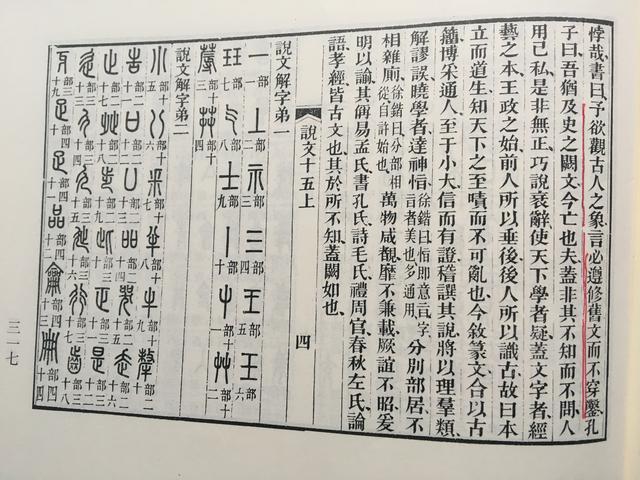 悖哉書曰予欲觀古人之象言必遵修舊文而不穿鑿孔
子曰吾猶及史之闕文今亡也夫蓋非其不知而不問人
用己私是非無正巧說衺辭使天下學者疑蓋文字者經
藝之本王政之始前人所以垂後後人所以識古故曰本
立而道生知天下之至嘖而不可亂也今敘篆文合以古
籒博采通人至于小大信而有證稽譔其說將以理羣類
解謬誤曉學者達神恉徐鍇曰恉即意旨字旨者美也多通用分別部居不
相雜廁徐鍇曰分部相從自許始也萬物咸覩靡不兼載厥誼不昭爰
明以諭其偁易孟氏書孔氏詩毛氏禮周官春秋左氏論
語孝經皆古文也其於所不知蓋闕如也
說文十五上 四
說文解字弟一
一部一 丄部二 示部三 三部四 王部五 玉部六
玨部七 气部八 士部九 丨部十 屮部十一 艸部十二
蓐部十三 茻部十四
說文解字弟二
小部十五 八部十六 釆部十七 半部十八 牛部十九 犛部二十
告部二十一 口部二十二 凵部二十三 吅部二十四 哭部二十五 走部二十六
止部二十七 癶部二十八 步部二十九 此部三十 正部三十一 是部三十二
辵部三十三 彳部三十四 廴部三十五 㢟部三十六 行部三十七 齒部三十八
牙部三十九 足部四十 疋部四十一 品部四十二 龠部四十三 冊部四十四
三一七